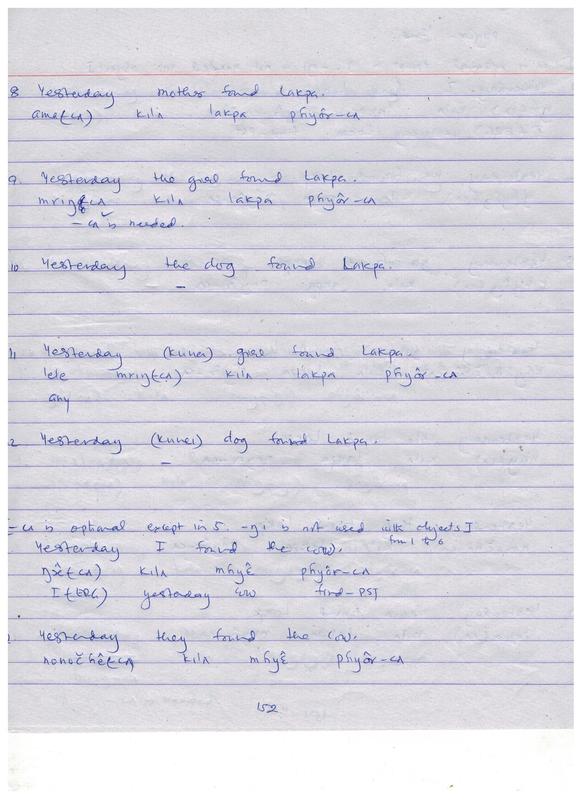 8 Yesterday mother found Lakpa.
ama(-cʌ) kilʌ lakpa pɦyôr-cʌ
9. Yesterday the girl found Lakpa.
mriŋ-cʌ kilʌ lakpa pɦyôr-cʌ
-cʌ is needed.
10 Yesterday the dog found Lakpa.
–
11 Yesterday (kunei) girl found Lakpa.
mriŋ(-cʌ) kilʌ lakpa pɦyôr-cʌ
any
2 Yesterday (kunei) dog found Lakpa.
–
-cʌ is optional except in 5. -ŋi is not used with objects]
from 1 to 6
Yesterday I found the cow.
(-cʌ) kilʌ mɦyê pɦyôr-cʌ
I (-ERG) yesterday cow find-PST
Yesterday they found the cow.
kilʌ mɦyê pɦyôr-cʌ
152